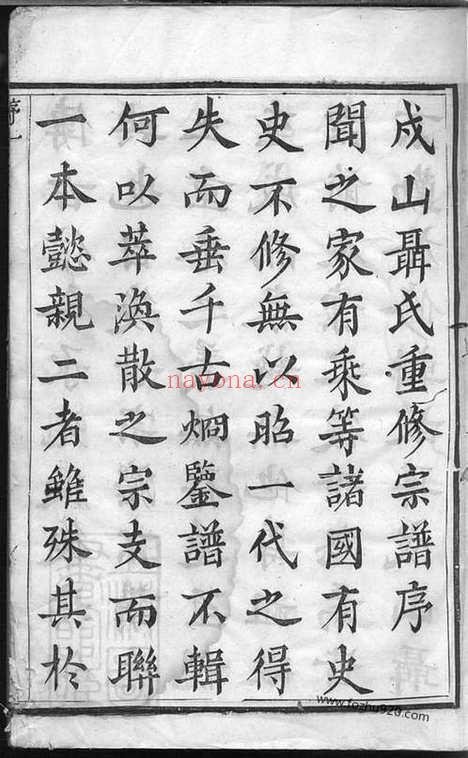 戍山聶氏重修宗譜序
聞之家有乘等諸國有史
史不修無以昭一代之得
失而垂千古炯鑒譜不輯
何以萃渙散之宗支而聯
一本懿親二者雖殊其於
序一
nayona.cn
www.fozhu920.com